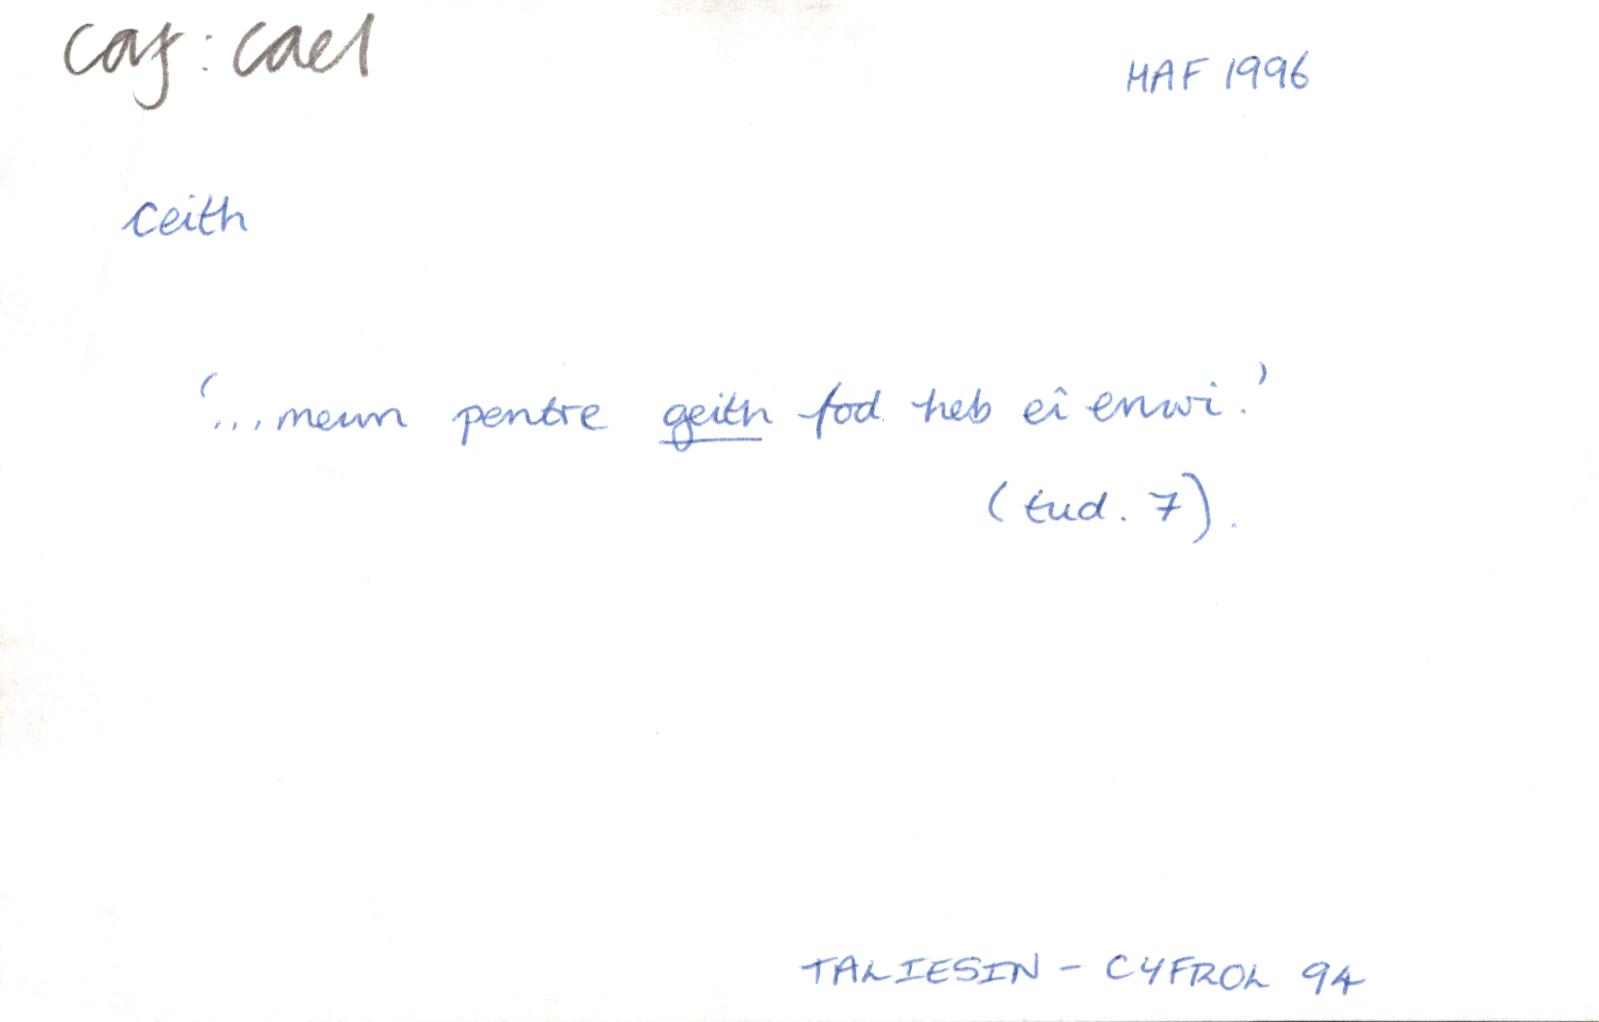 caf: cael
HAF 1996
ceith
'...mewn pentre geith fod heb ei enwi.'
(tud. 7).
TALIESIN - CYFROL 94